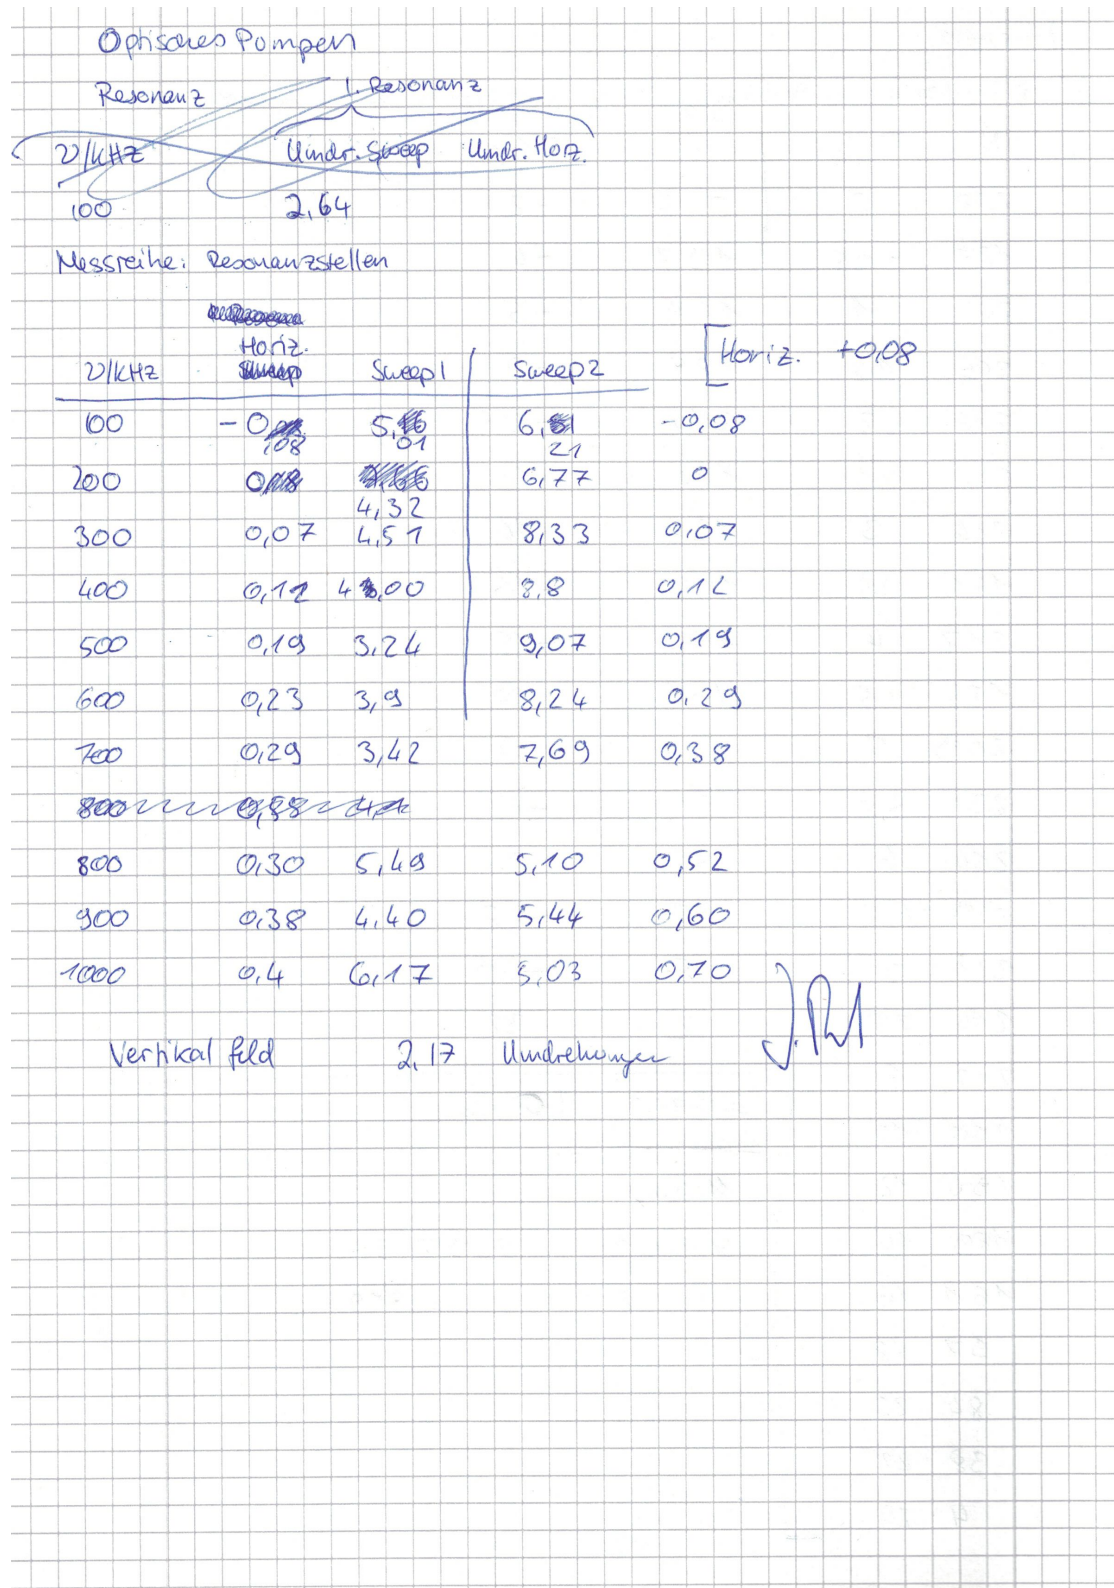 Optisches Pumpen
Resonanz 1. Resonanz
ν/kHz Umdr. Sweep Umdr. Horz.
100 2,64
Messreihe: Resonanzstellen
Horiz. [Horiz. +0,08
ν/kHz Sweep Sweep1 Sweep2
100 -0,08 5,01 6,21 -0,08
200 0 4,32 6,77 0
300 0,07 4,51 8,33 0,07
400 0,12 4,00 8,8 0,12
500 0,19 3,24 9,07 0,19
600 0,23 3,9 8,24 0,29
700 0,29 3,42 7,69 0,38
800
800 0,30 5,49 5,10 0,52
900 0,38 4,40 5,44 0,60
1000 0,4 6,17 5,03 0,70
Vertikalfeld 2,17 Umdrehungen